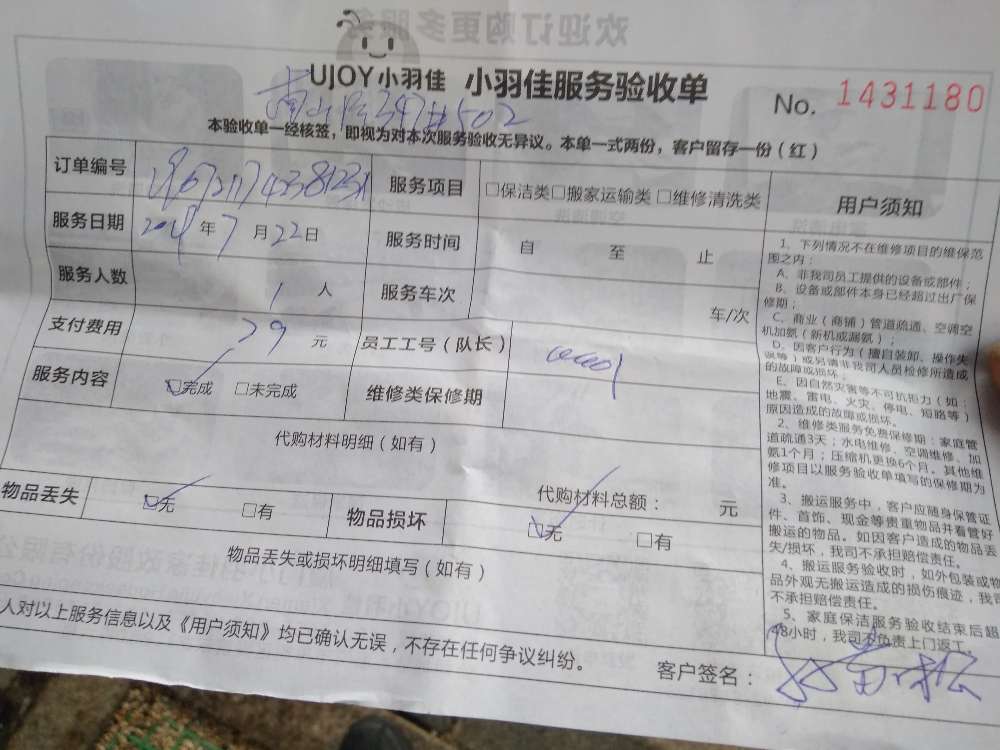 欢迎订购更多服务
UJOY小羽佳 小羽佳服务验收单
No. 1431180
502
本验收单一经核签，即视为对本次服务验收无异议。本单一式两份，客户留存一份（红）
订单编号 服务项目 □保洁类□搬家运输类□维修清洗类 用户须知
服务日期 年7月22日 服务时间 自 至 止
服务人数 1人 服务车次 车/次
支付费用 79元 员工工号（队长）
服务内容 □完成 □未完成 维修类保修期
代购材料明细（如有）
代购材料总额： 元
物品丢失 □无 □有 物品损坏 □无 □有
物品丢失或损坏明细填写（如有）
人对以上服务信息以及《用户须知》均已确认无误，不存在任何争议纠纷。
客户签名：
1、下列情况不在维修项目的维保范
围之内：
A、非我司员工提供的设备或部件；
B、设备或部件本身已经超过出厂保
修期；
C、商业（商铺）管道疏通、空调空
机加氨（新机或漏氨）；
D、因客户行为（擅自装卸、操作失
误等）或另请非我司人员检修所造成
的故障或损坏。
E、因自然灾害等不可抗拒力（如：
地震、雷电、火灾、停电、短路等）
原因造成的故障或损坏。
2、维修类服务免费保修期：家庭管
道疏通3天；水电维修、空调维修、加
氨1个月；压缩机更换6个月。其他维
修项目以服务验收单填写的保修期为
准。
3、搬运服务中，客户应随身保管证
件、首饰、现金等贵重物品并看管好
搬运的物品。如因客户造成的物品丢
失/损坏，我司不承担赔偿责任。
4、搬运服务验收时，如外包装或物
品外观无搬运造成的损伤痕迹，我司
不承担赔偿责任。
5、家庭保洁服务验收结束后超
48小时，我司不负责上门返工。